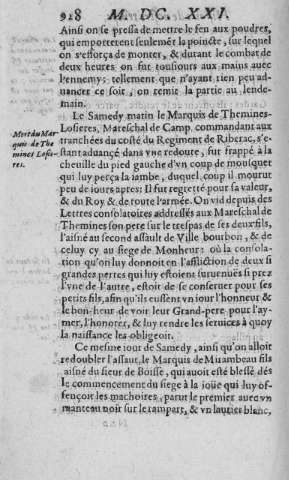 928 M. DC. XXI.
Ainsi on se pressa de mettre le feu aux poudres,
qui emporterent seulemēt la poincte, sur lequel
on s'efforça de monter, & durant le combat de
deux heures on fut tousiours aux mains auec
l'ennemy: tellement que n'ayant rien peu ad-
uancer ce soir, on remit la partie au lende-
main.
Le Samedy matin le Marquis de Themines-
Losieres, Mareschal de Camp, commandant aux
tranchées du costé du Regiment de Riberac, s'e-
stant aduancé dans vne redoute, fut frappé à la
cheuille du pied gauche d'vn coup de mousquet
qui luy perça la iambe, duquel coup il mourut
peu de iours apres: Il fut regretté pour sa valeur,
& du Roy & de toute l'armée. On vid depuis des
Lettres consolatoires addressées aux Mareschal de
Themines son pere sur le trespas de ses deux fils,
l'aisné au second assault de Ville bourbon, & de
celuy cy au siege de Monheur: où la consola-
tion qu'on luy donnoit en l'affliction de deux si
grandes pertes qui luy estoient suruenuës si prez
l'vne de l'autre, estoit de se conseruer pour ses
petits fils, afin qu'ils eussent vn iour l'honneur &
le bon-heur de voir leur Grand-pere pour l'ay-
mer, l'honorer, & luy rendre les seruices à quoy
la naissance les obligeoit.
Ce mesme iour de Samedy, ainsi qu'on alloit
redoubler l'assaut, le Marquis de Mirambeau fils
aisné du sieur de Boisse, qui auoit esté blessé dés
le commencement du siege à la ioüe qui luy of-
fençoit les machoires, parut le premier auec vn
manteau noir sur le rampart, & vn lautier blanc,
Mort du Mar
quis de The
mines Losie-
res.